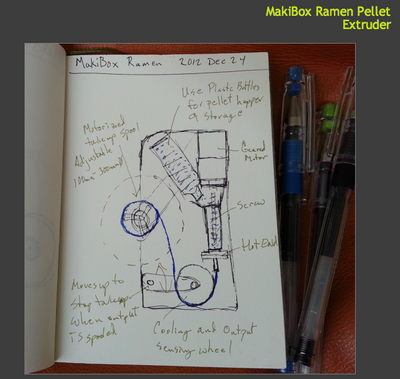 MakiBox Ramen Pellet
Extruder
MakiBox Ramen 2012 Dec 24
Use Plastic Bottles
for pellet hopper
& storage
Motorized
takeup spool
Adjustable
100mm-300mm
Geared
Motor
Screw
Hot End
Moves up to
Stop takeup
when output
is spooled
Cooling and Output
sensing wheel